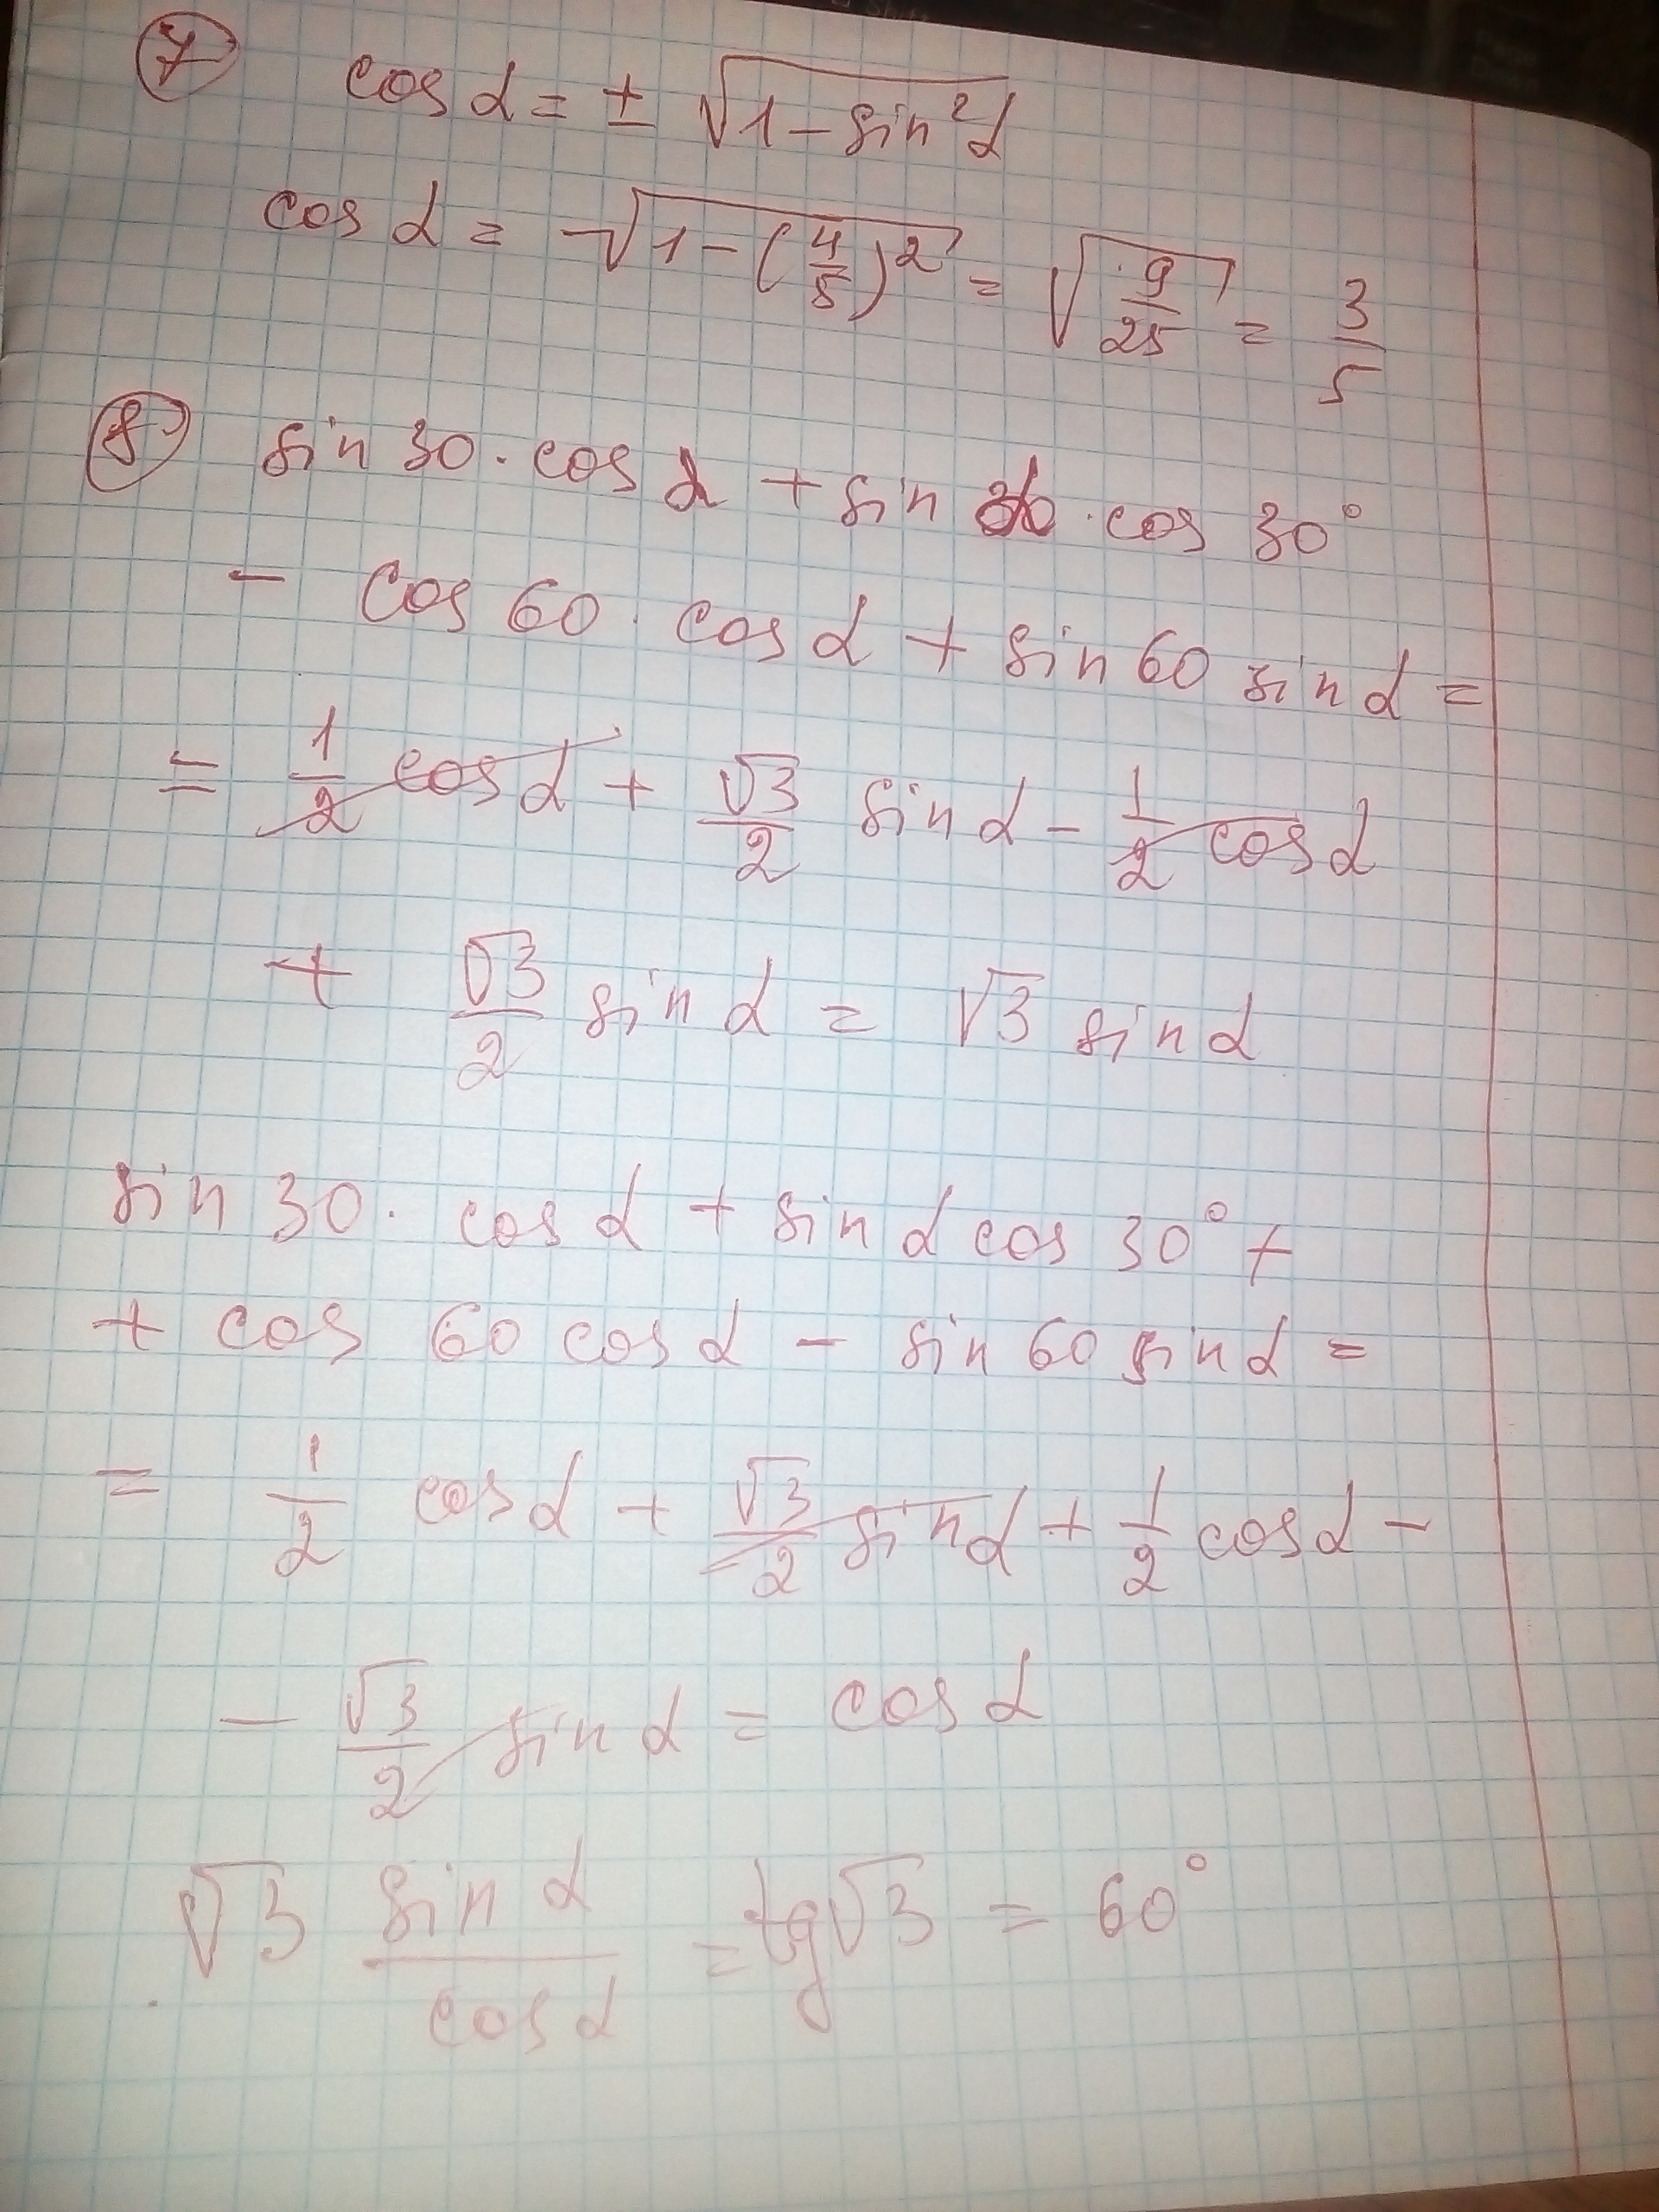 7 cos α = ± √(1 - sin²α)
cos α = -√(1 - (4/5)²) = √(9/25) = 3/5
8 sin 30 · cos α + sin α · cos 30°
- cos 60 · cos α + sin 60 sin α =
= 1/2 cos α + √3/2 sin α - 1/2 cos α
+ √3/2 sin α = √3 sin α
sin 30 · cos α + sin α cos 30° +
+ cos 60 cos α - sin 60 sin α =
= 1/2 cos α + √3/2 sin α + 1/2 cos α -
- √3/2 sin α = cos α
√3 sin α / cos α = tg √3 = 60°